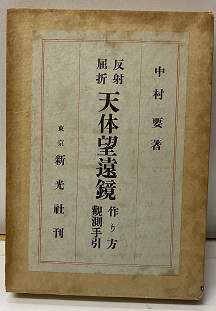 中村要著
反射
屈折
天体望遠鏡
作り方
観測手引
東京 新光社刊